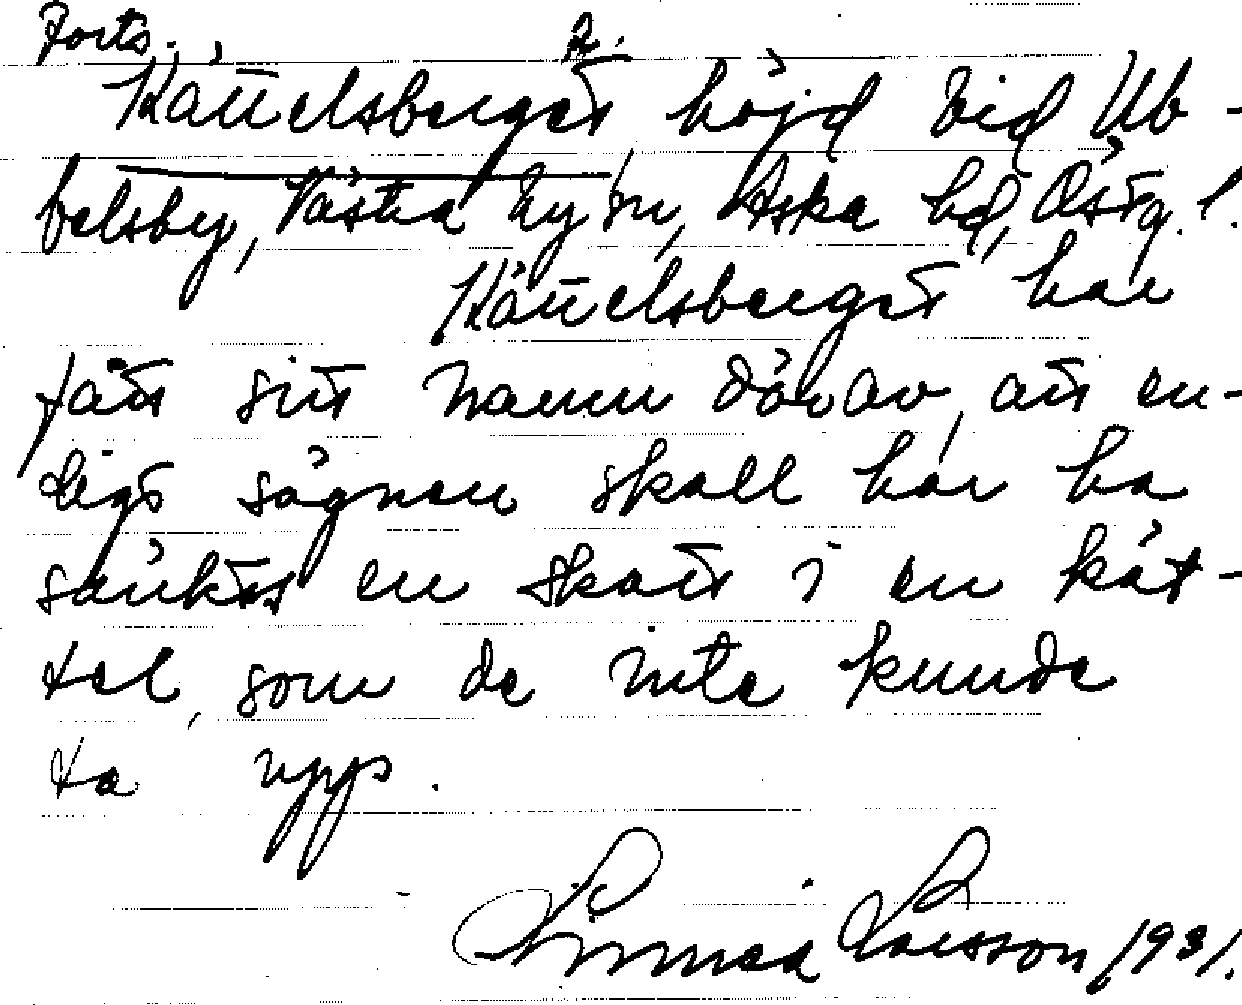 Forts. 2.
Kättelsberget höjd vid Ub-
belsby, Västra Ny sn, Aska hd, Östg. l.
Kättelsberget har
fått sitt namn därav, att en-
ligt sägnen skall här ha
sänkts en skatt i en kät-
tel, som de inte kunde
ta upp.
Linnea Larsson 1931.